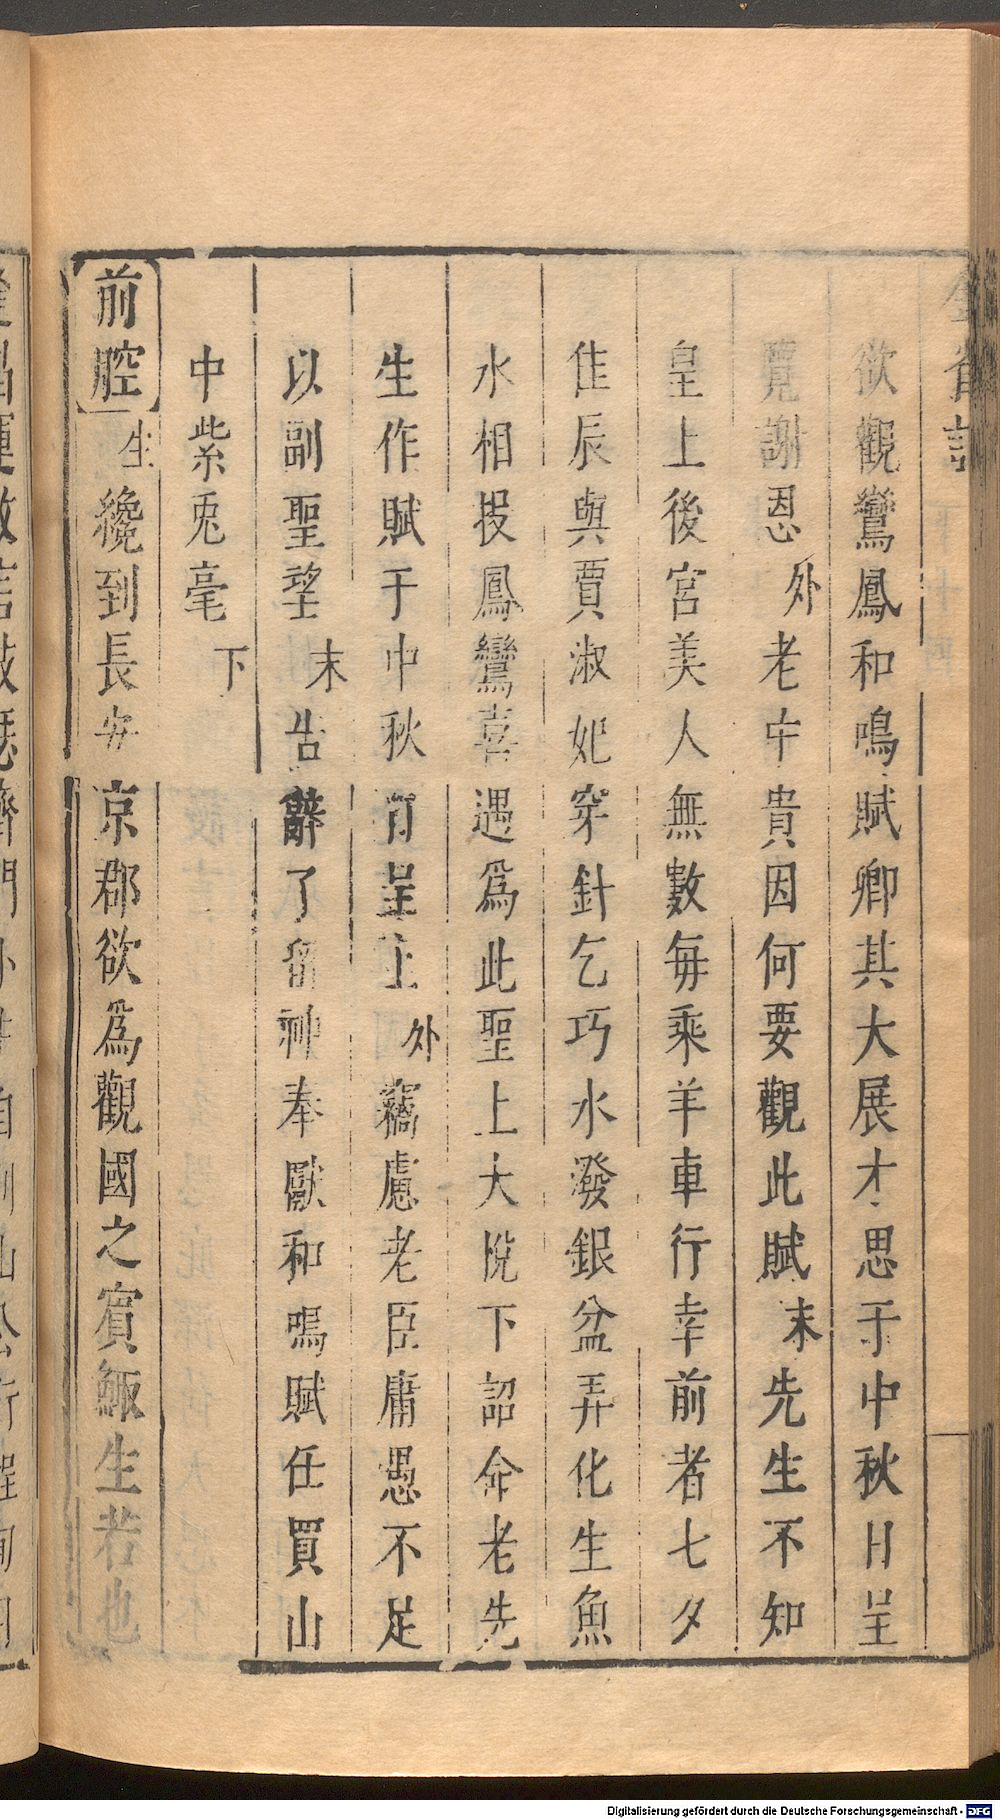 欲觀鸞鳳和鳴賦卿其大展才思于中秋日呈
覽謝恩 外 老中貴因何要觀此賦 末 先生不知
皇上後宮美人無數每乘羊車行幸前者七夕
佳辰與賈淑妃穿針乞巧水潑銀盆弄化生魚
水相投鳳鸞喜遇為此聖上大悅下詔命老先
生作賦于中秋日呈上 外 竊慮老臣庸愚不足
以副聖望 末 告辭了留神奉獻和鳴賦任買山
中紫兎毫 下
前腔 生 纔到長安京郡欲為觀國之賓鯫生若也
Digitalisierung gefördert durch die Deutsche Forschungsgemeinschaft - DFG